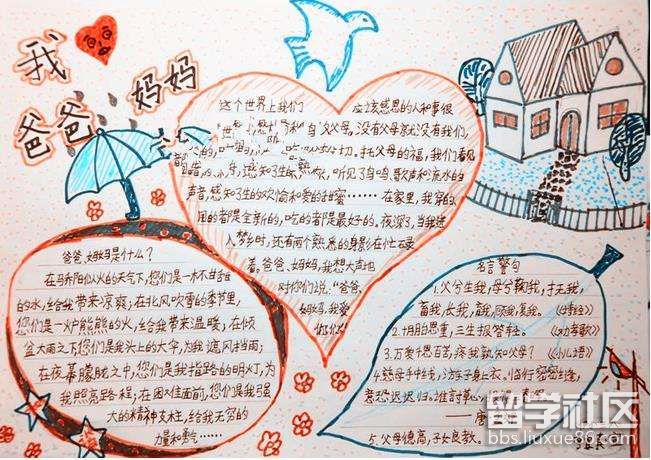 我
爸爸
妈妈
这个世界上我们
应该感恩的人和事很
父母,没有父母就没有我们,
切。托父母的福,我们看见
感知了生的热,听见了鸟鸣歌声和流水的
声音,感知了生的欢愉和爱的甜蜜……在家里,我穿的、
用的都是全新的,吃的都是最好的。夜深了,当我进
入梦乡时,还有两个熟悉的身影在忙碌
着。爸爸、妈妈,我想大声地
对你们说:“爸爸、
妈妈,我爱
你们!
爸爸、妈妈是什么?
在骄阳似火的天气下,您们是一杯甘甜
的水,给我带来凉爽;在北风吹雪的季节里,
您们是一炉熊熊的火,给我带来温暖;在倾
盆大雨之下,您们是我头上的大伞,为我遮风挡雨;
在夜幕朦胧之中,您们是我指路的明灯,为
我照亮路程;在困难面前,您们是我强
大的精神支柱,给我无穷的
力量和勇气……
名言警句
1.父兮生我,母兮鞠我,抚我,
畜我,长我,育我,顾我,复我。
2.十月胎恩重,三生报答轻。《劝孝歌》
3.万爱千恩百苦,疼我孰知父母?《小儿语》
4.慈母手中线,游子身上衣。临行密密缝,
意恐迟迟归。谁言寸草心,
——唐
5.父母德高,子女良教。
留学社区
bbs.liuxue86.com